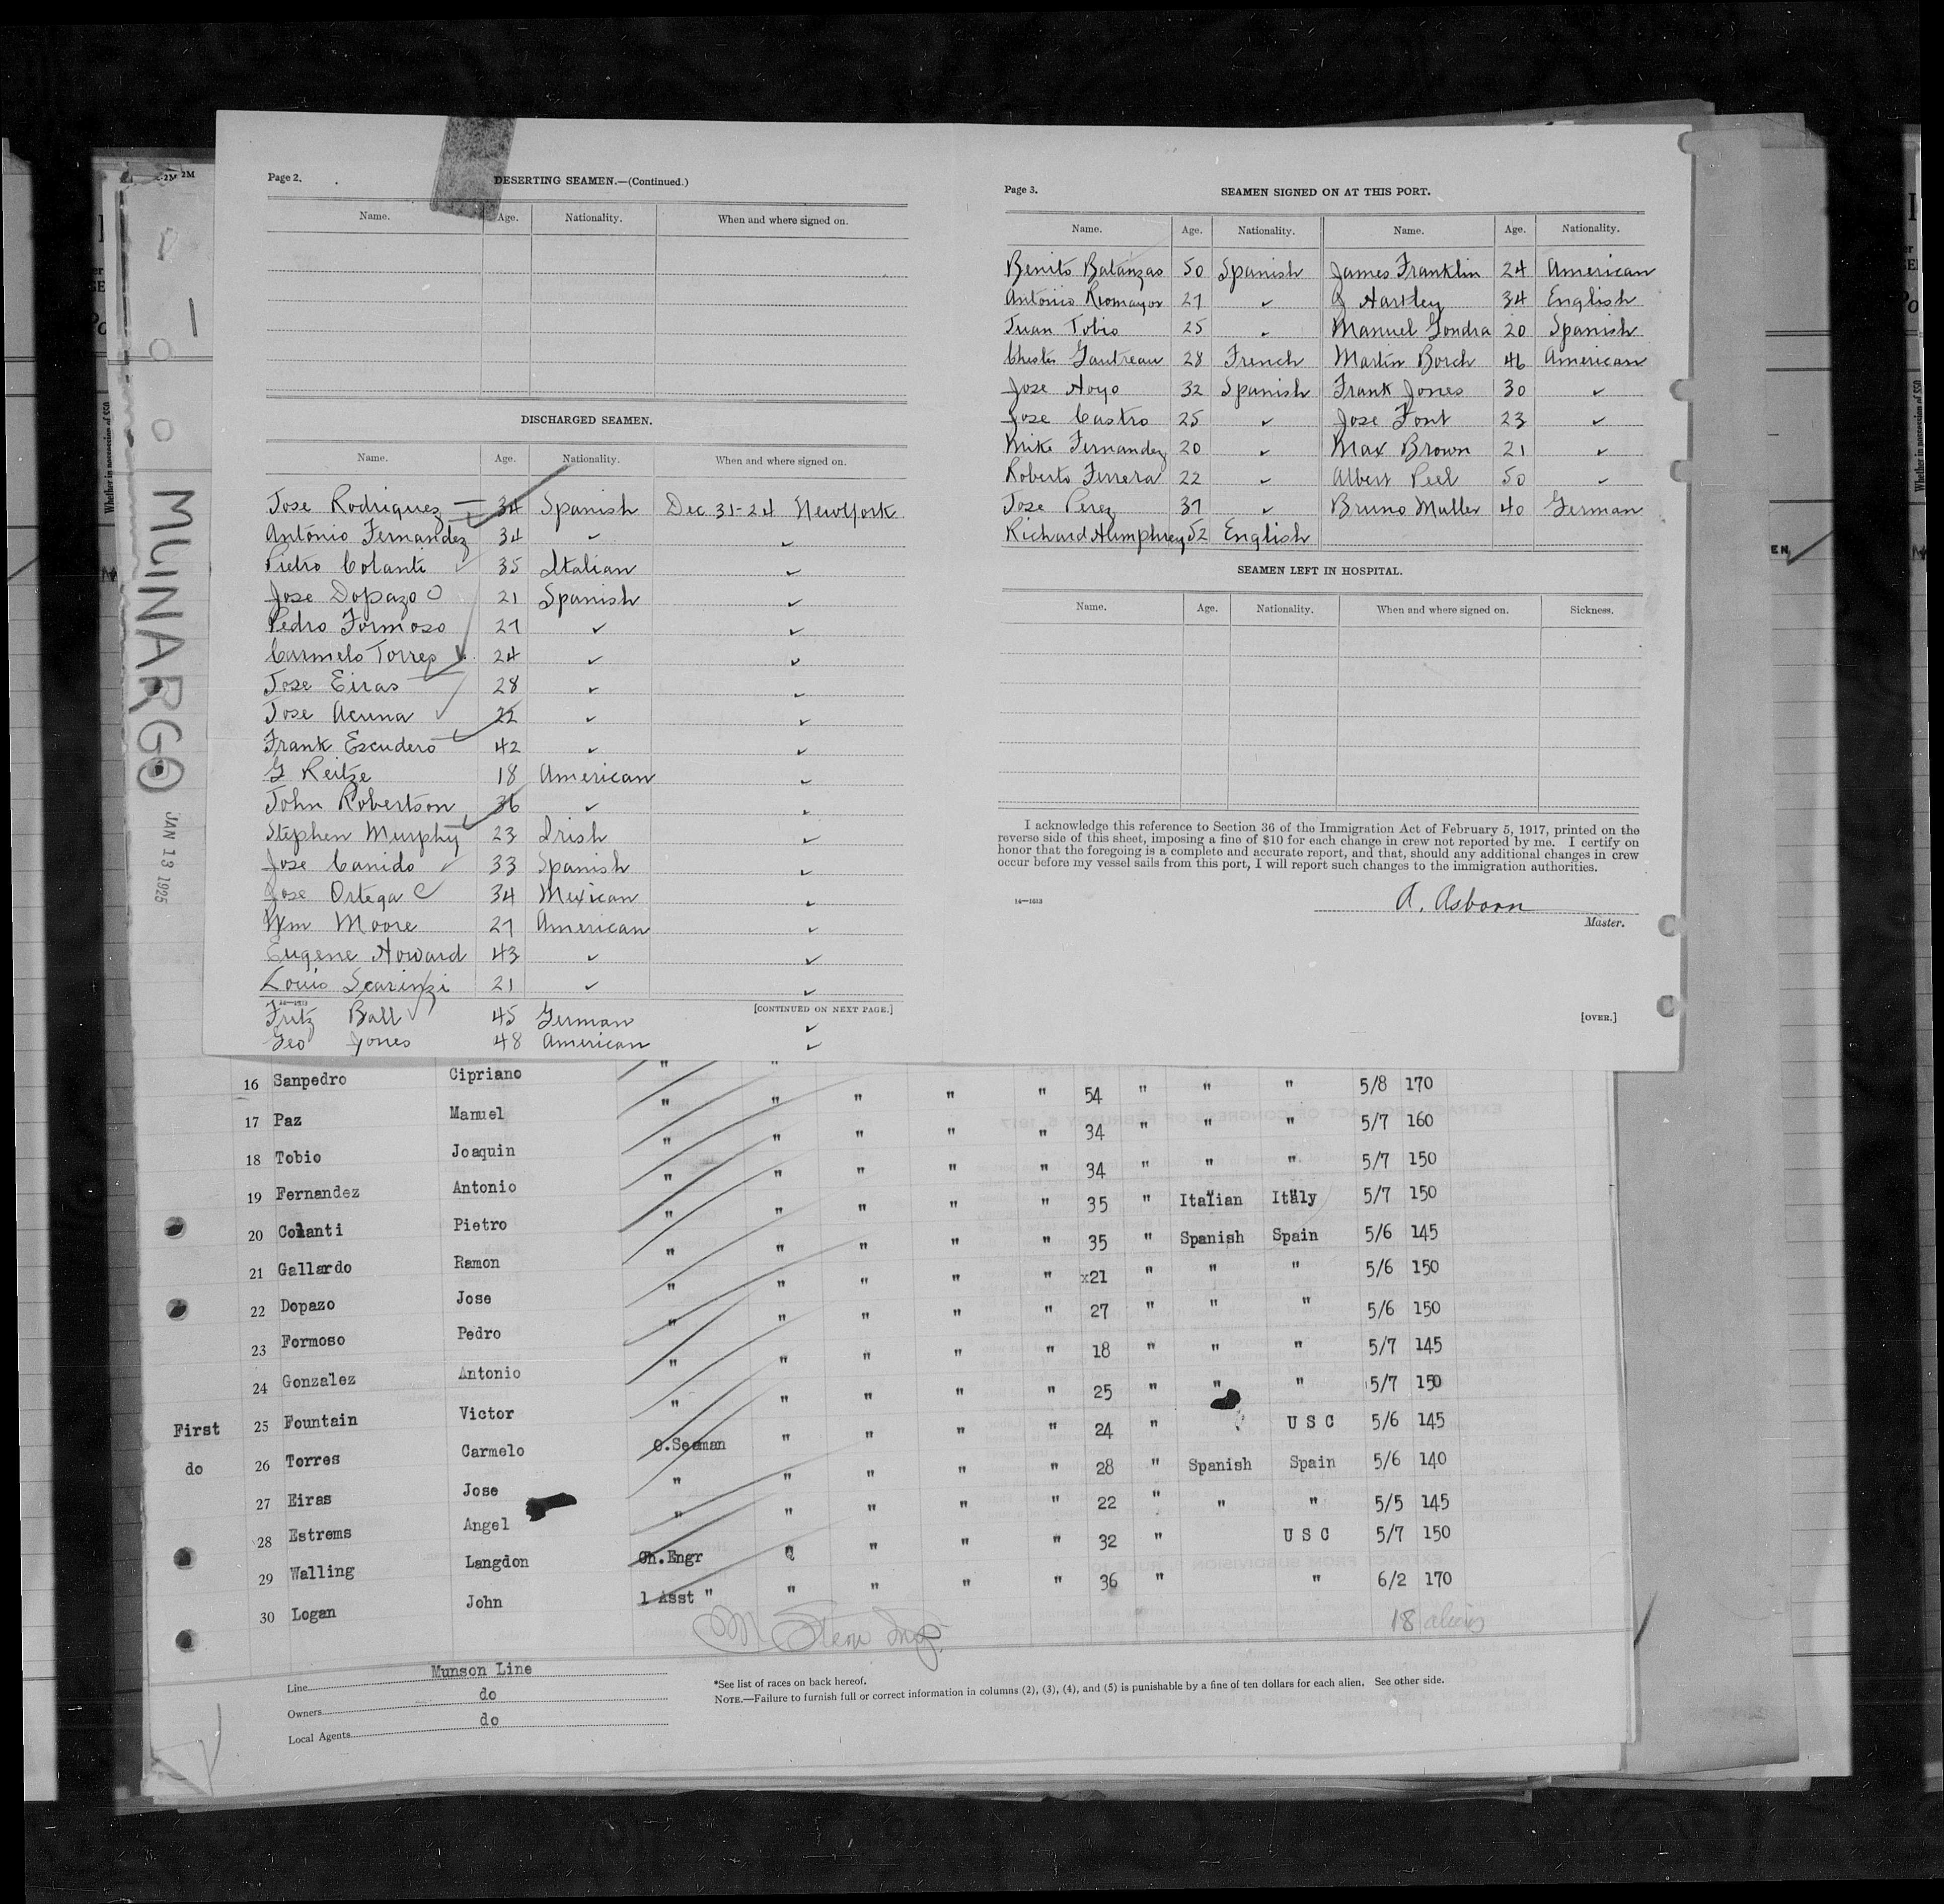 Page 2.
DESERTING SEAMEN.—(Continued.)
Name. Age. Nationality. When and where signed on.
DISCHARGED SEAMEN.
Name. Age. Nationality. When and where signed on.
Jose Rodriguez 34 Spanish Dec 31-24 New York
Antonio Fernandez 34 ✓ ✓
Pietro Colanti 35 Italian ✓
Jose Dopazo 21 Spanish ✓
Pedro Formoso 27 ✓ ✓
Carmelo Torres 24 ✓ ✓
Jose Eiras 28 ✓ ✓
Jose Acuna 22 ✓ ✓
Frank Escudero 42 ✓ ✓
G Reitze 18 American ✓
John Robertson 36 ✓ ✓
Stephen Murphy 23 Irish ✓
Jose Canido 33 Spanish ✓
Jose Ortega 34 Mexican ✓
Wm Moore 27 American ✓
Eugene Howard 43 ✓ ✓
Louis Scarinzi 21 ✓ ✓
[CONTINUED ON NEXT PAGE.]
Fritz Ball 45 German ✓
Geo Jones 48 American ✓
Page 3.
SEAMEN SIGNED ON AT THIS PORT.
Name. Age. Nationality. Name. Age. Nationality.
Benito Batanzas 50 Spanish James Franklin 24 American
Antonio Romayor 27 ✓ J Hartley 34 English
Juan Tobio 25 ✓ Manuel Gondra 20 Spanish
Chester Gautreau 28 French Martin Borch 46 American
Jose Hoyo 32 Spanish Frank Jones 30 ✓
Jose Castro 25 ✓ Jose Font 23 ✓
Mike Fernandez 20 ✓ Max Brown 21 ✓
Roberto Ferrera 22 ✓ Albert Peel 50 ✓
Jose Perez 37 ✓ Bruno Muller 40 German
Richard Humphrey 52 English
SEAMEN LEFT IN HOSPITAL.
Name. Age. Nationality. When and where signed on. Sickness.
I acknowledge this reference to Section 36 of the Immigration Act of February 5, 1917, printed on the
reverse side of this sheet, imposing a fine of $10 for each change in crew not reported by me. I certify on
honor that the foregoing is a complete and accurate report, and that, should any additional changes in crew
occur before my vessel sails from this port, I will report such changes to the immigration authorities.
14—1613
A. Asborn
Master.
[OVER.]
MUNARGO
JAN 13 1925
16 Sanpedro Cipriano " "
17 Paz Manuel " " " " " 54 " " " 5/8 170
18 Tobio Joaquin " " " " " 34 " " " 5/7 160
19 Fernandez Antonio " " " " " 34 " " " 5/7 150
20 Colanti Pietro " " " " " 35 " Italian Italy 5/7 150
21 Gallardo Ramon " " " " " 35 " Spanish Spain 5/6 145
22 Dopazo Jose " " " " " x21 " " " 5/6 150
23 Formoso Pedro " " " " " 27 " " " 5/6 150
24 Gonzalez Antonio " " " " " 18 " " " 5/7 145
First 25 Fountain Victor " " " " " 25 " " " 5/7 150
do 26 Torres Carmelo O.Seaman " " " " 24 " U S C 5/6 145
27 Eiras Jose " " " " " 28 " Spanish Spain 5/6 140
28 Estrems Angel " " " " " 22 " " " 5/5 145
29 Walling Langdon Ch.Engr " " " " 32 " U S C 5/7 150
30 Logan John 1 Asst " " " " " 36 " " 6/2 170
18 aliens
Line Munson Line
Owners do
Local Agents do
*See list of races on back hereof.
NOTE.—Failure to furnish full or correct information in columns (2), (3), (4), and (5) is punishable by a fine of ten dollars for each alien. See other side.